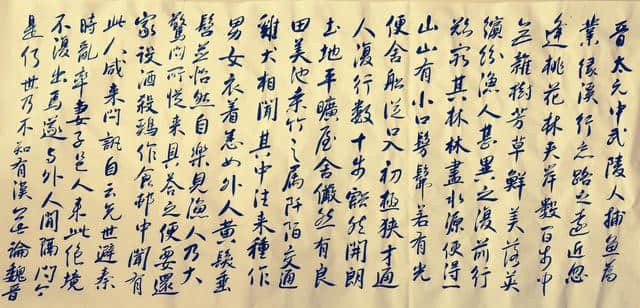 晋太元中武陵人捕鱼为
業缘溪行忘路之遠近忽
逢桃花林夹岸數百步中
无雜樹芳草鮮美落英
缤纷渔人甚異之復前行
欲窮其林林盡水源便得一
山山有小口髣髴若有光
便舍船從口入初極狭才通
人復行数十步豁然開朗
土地平曠屋舍儼然有良
田美池桑竹之属阡陌交通
雞犬相聞其中往来種作
男女衣着悉如外人黄髮垂
髫並怡然自樂見渔人乃大
驚問所從来具答之便要還
家設酒殺鷄作食邨中聞有
此人咸来問訊自云先世避秦
時亂率妻子邑人来此绝境
不復出焉遂与外人間隔问今
是何世乃不知有漢無論魏晋